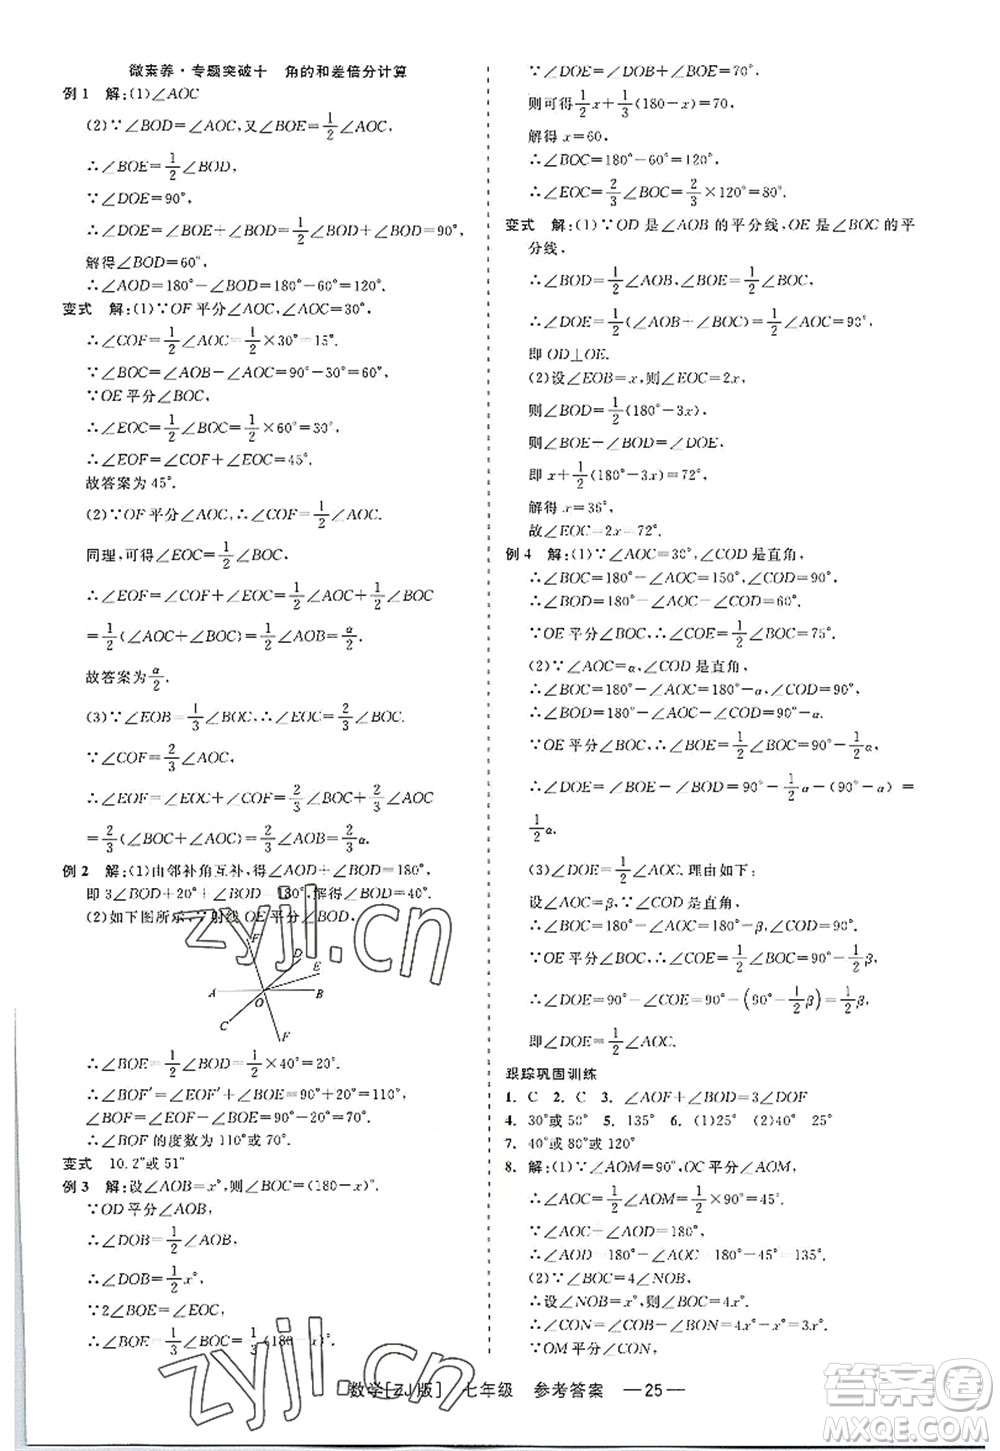 微素养·专题突破十　角的和差倍分计算
例1　解:(1)∠AOC
(2)∵∠BOD=∠AOC,又∠BOE=1/2∠AOC,
∴∠BOE=1/2∠BOD,
∵∠DOE=90°,
∴∠DOE=∠BOE+∠BOD=1/2∠BOD+∠BOD=90°,
解得∠BOD=60°,
∴∠AOD=180°-∠BOD=180°-60°=120°.
变式　解:(1)∵OF平分∠AOC,∠AOC=30°,
∴∠COF=1/2∠AOC=1/2×30°=15°.
∵∠BOC=∠AOB-∠AOC=90°-30°=60°,
∵OE平分∠BOC,
∴∠EOC=1/2∠BOC=1/2×60°=30°,
∴∠EOF=∠COF+∠EOC=45°.
故答案为45°.
(2)∵OF平分∠AOC,∴∠COF=1/2∠AOC.
同理,可得∠EOC=1/2∠BOC,
∴∠EOF=∠COF+∠EOC=1/2∠AOC+1/2∠BOC
=1/2(∠AOC+∠BOC)=1/2∠AOB=α/2.
故答案为α/2.
(3)∵∠EOB=1/3∠BOC,∴∠EOC=2/3∠BOC.
∵∠COF=2/3∠AOC,
∴∠EOF=∠EOC+∠COF=2/3∠BOC+2/3∠AOC
=2/3(∠BOC+∠AOC)=2/3∠AOB=2/3α.
例2　解:(1)由邻补角互补,得∠AOD+∠BOD=180°,
即3∠BOD+20°+∠BOD=180°,解得∠BOD=40°.
(2)如下图所示,∵射线OE平分∠BOD,
F′
D
E
A
O
B
C
F
∴∠BOE=1/2∠BOD=1/2×40°=20°,
∴∠BOF′=∠EOF′+∠BOE=90°+20°=110°,
∠BOF=∠EOF-∠BOE=90°-20°=70°,
∴∠BOF的度数为110°或70°.
变式　10.2°或51°
例3　解:设∠AOB=x°,则∠BOC=(180-x)°.
∵OD平分∠AOB,
∴∠DOB=1/2∠AOB,
∴∠DOB=1/2x°,
∵2∠BOE=∠EOC,
∴∠BOE=1/3∠BOC=1/3(180-x)°,
∵∠DOB+∠BOE=∠DOE=70°,
则可得1/2x+1/3(180-x)=70,
解得x=60,
∴∠BOC=180°-60°=120°,
∴∠EOC=2/3∠BOC=2/3×120°=80°.
变式　解:(1)∵OD是∠AOB的平分线,OE是∠BOC的平
分线,
∴∠BOD=1/2∠AOB,∠BOE=1/2∠BOC,
∴∠DOE=1/2(∠AOB+∠BOC)=1/2∠AOC=90°,
即OD⊥OE.
(2)设∠EOB=x,则∠EOC=2x,
则∠BOD=1/2(180°-3x),
∵∠BOE+∠BOD=∠DOE,
即x+1/2(180°-3x)=72°,
解得x=36°,
故∠EOC=2x=72°.
例4　解:(1)∵∠AOC=30°,∠COD是直角,
∴∠BOC=180°-∠AOC=150°,∠COD=90°,
∴∠BOD=180°-∠AOC-∠COD=60°,
∵OE平分∠BOC,∴∠COE=1/2∠BOC=75°.
(2)∵∠AOC=α,∠COD是直角,
∴∠BOC=180°-∠AOC=180°-α,
∴∠BOD=180°-∠AOC-∠COD=90°-α.
∵OE平分∠BOC,∴∠BOE=1/2∠BOC=90°-1/2α,
∴∠DOE=∠BOE-∠BOD=90°-1/2α-(90°-α)=
1/2α.
(3)∠DOE=1/2∠AOC.理由如下:
设∠AOC=β,则∠DOE=1/2β,
∴∠BOC=180°-∠AOC=180°-β,∠COD=90°,
∵OE平分∠BOC,∴∠COE=1/2∠BOC=90°-1/2β,
∴∠DOE=∠COD-∠COE=90°-(90°-1/2β)=1/2β,
即∠DOE=1/2∠AOC.
跟踪巩固训练
1. C　2. C　3. ∠AOF+∠BOD=3∠DOF
4. 30°或50°　5. 135°　6. (1)25°　(2)40°　25°
7. 40°或80°或120°
8. 解:(1)∵∠AOM=90°,OC平分∠AOM,
∴∠AOC=1/2∠AOM=1/2×90°=45°.
∵∠AOC+∠AOD=180°,
∴∠AOD=180°-∠AOC=180°-45°=135°.
(2)∵∠BOC=4∠NOB,
∴设∠NOB=x°,则∠BOC=4x°,
∴∠CON=∠COB-∠BON=4x°-x°=3x°.
∵OM平分∠CON,
数学[ZJ版]　七年级　参考答案　—25—
zyjl.cn
zyjl.cn
答案圈
MXQE.COM